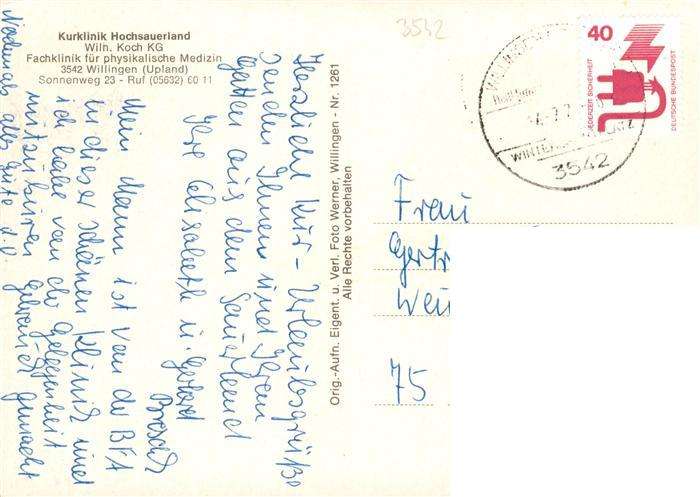 Kurklinik Hochsauerland
Wilh. Koch KG
Fachklinik für physikalische Medizin
3542 Willingen (Upland)
Sonnenweg 23 - Ruf (05632) 60 11
Herzliche Kur-Urlaubsgrüße
senden Ihnen und Ihrem
Gatten aus dem Sauerland
Ihre Elisabeth u. Gerhard
Mein Mann ist von der BFA
in dieser schönen Klinik und
ich habe von der Gelegenheit
mitzukuren Gebrauch gemacht
Nochmals alles Gute d. O.
Orig.-Aufn. Eigent. u. Verl. Foto Werner, Willingen - Nr. 1261
Alle Rechte vorbehalten
3542
40
JEDERZEIT SICHERHEIT
DEUTSCHE BUNDESPOST
WINTER
3542
Frau
Gertr
Wei
75